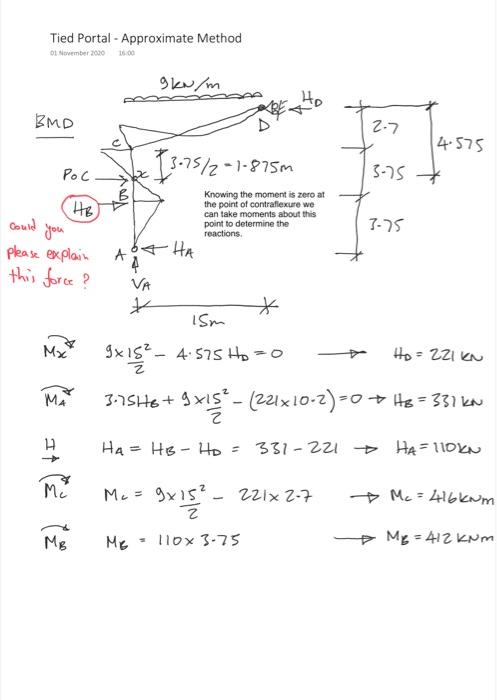 Tied Portal - Approximate Method
01 November 2020 16:00
9kN/m
HD
BMD
D
2.7
4.575
C
3.75/2 = 1.875m
PoC
x
3.75
B
HB
Knowing the moment is zero at
the point of contraflexure we
can take moments about this
point to determine the
reactions.
3.75
Could you
please explain
this force?
A
HA
VA
15m
Mx 9x15²/2 - 4.575 HD = 0 → HD = 221 kN
MA 3.75HB + 9x15²/2 - (221x10.2) = 0 → HB = 331 kN
H → HA = HB - HD = 331 - 221 → HA = 110kN
Mc Mc = 9x15²/2 - 221x2.7 → Mc = 416kNm
MB MB = 110x3.75 → MB = 412 kNm